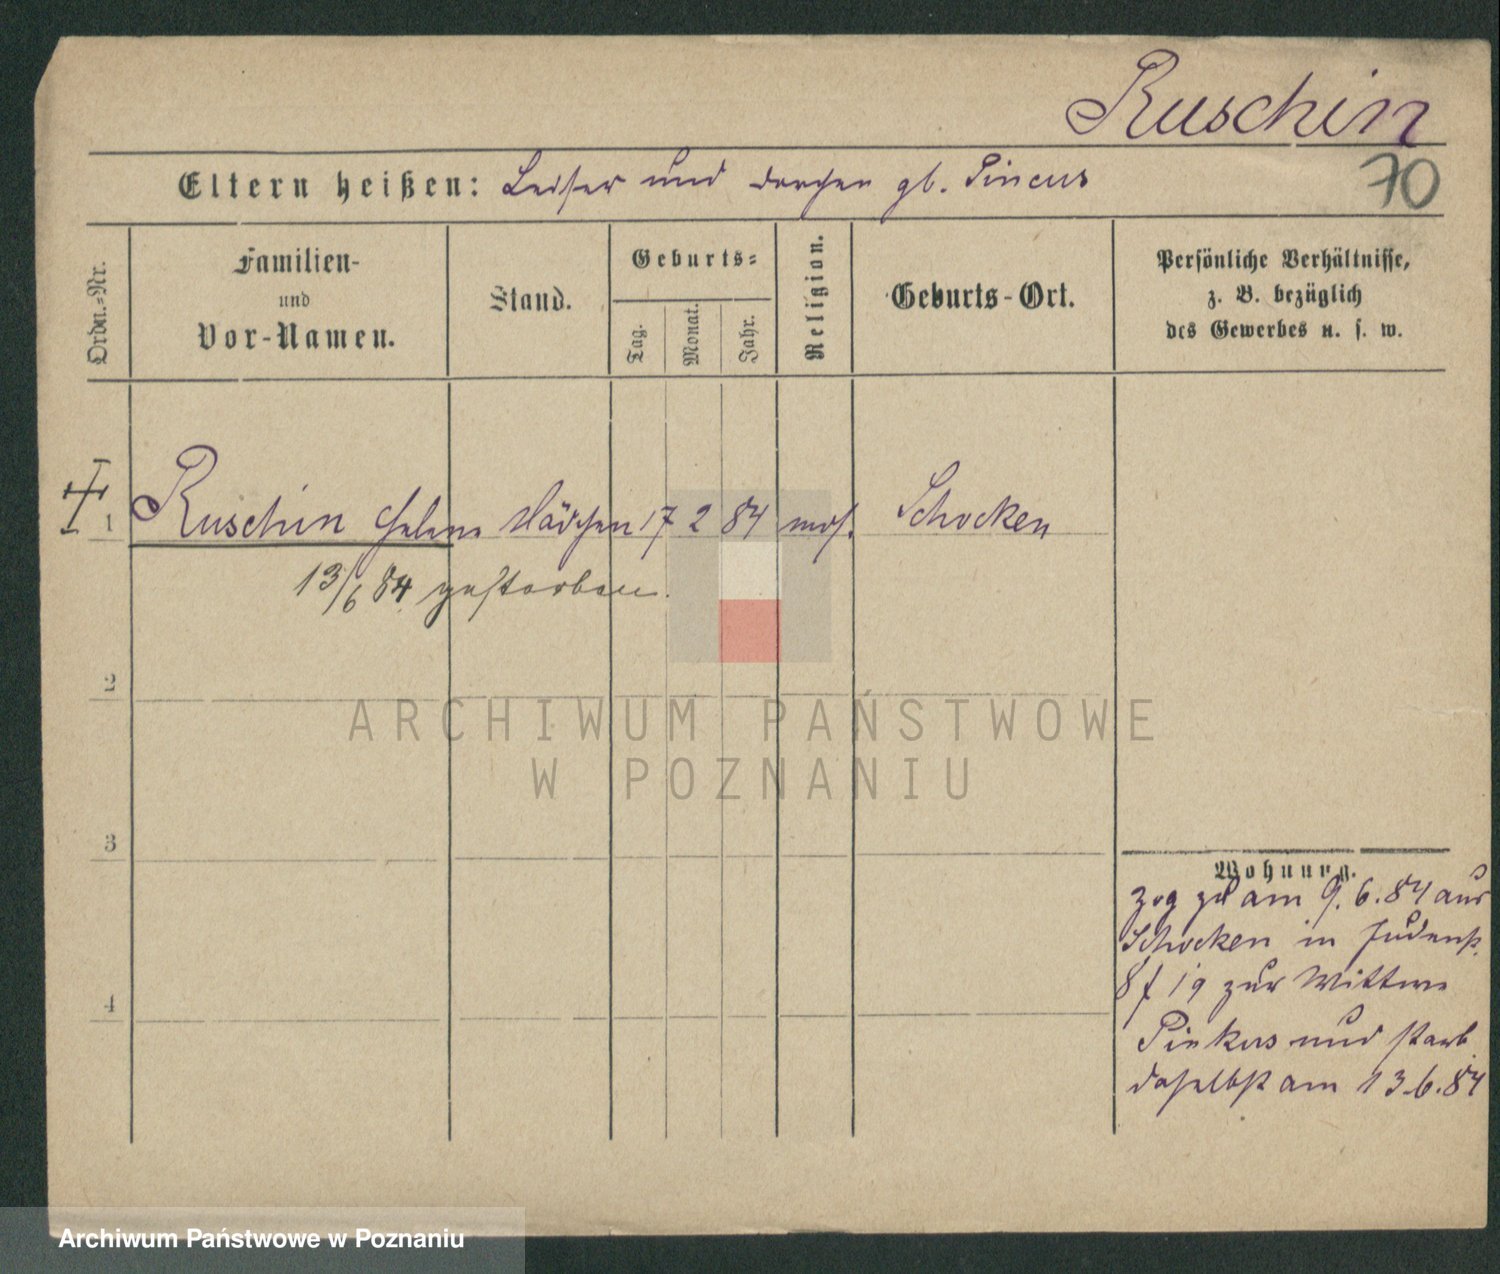 Ruschin
70
Eltern heißen: Leiser und Dorchen gb. Pincus
Ordn.=Nr.
Familien-
und
Vor-Namen.
Stand.
Geburts=
Tag.
Monat.
Jahr.
Religion.
Geburts-Ort.
Persönliche Verhältnisse,
z. B. bezüglich
des Gewerbes u. s. w.
1 Ruschin Helene Mädchen 17 2 84 mos. Schocken
13/6 84 gestorben.
2
ARCHIWUM PAŃSTWOWE
W POZNANIU
3
Wohnung.
zog zu am 9.6.84 aus
Schocken in Judenst.
8 f 19 zur Wittwe
4
Pinkus und starb
daselbst am 13.6.84
Archiwum Państwowe w Poznaniu